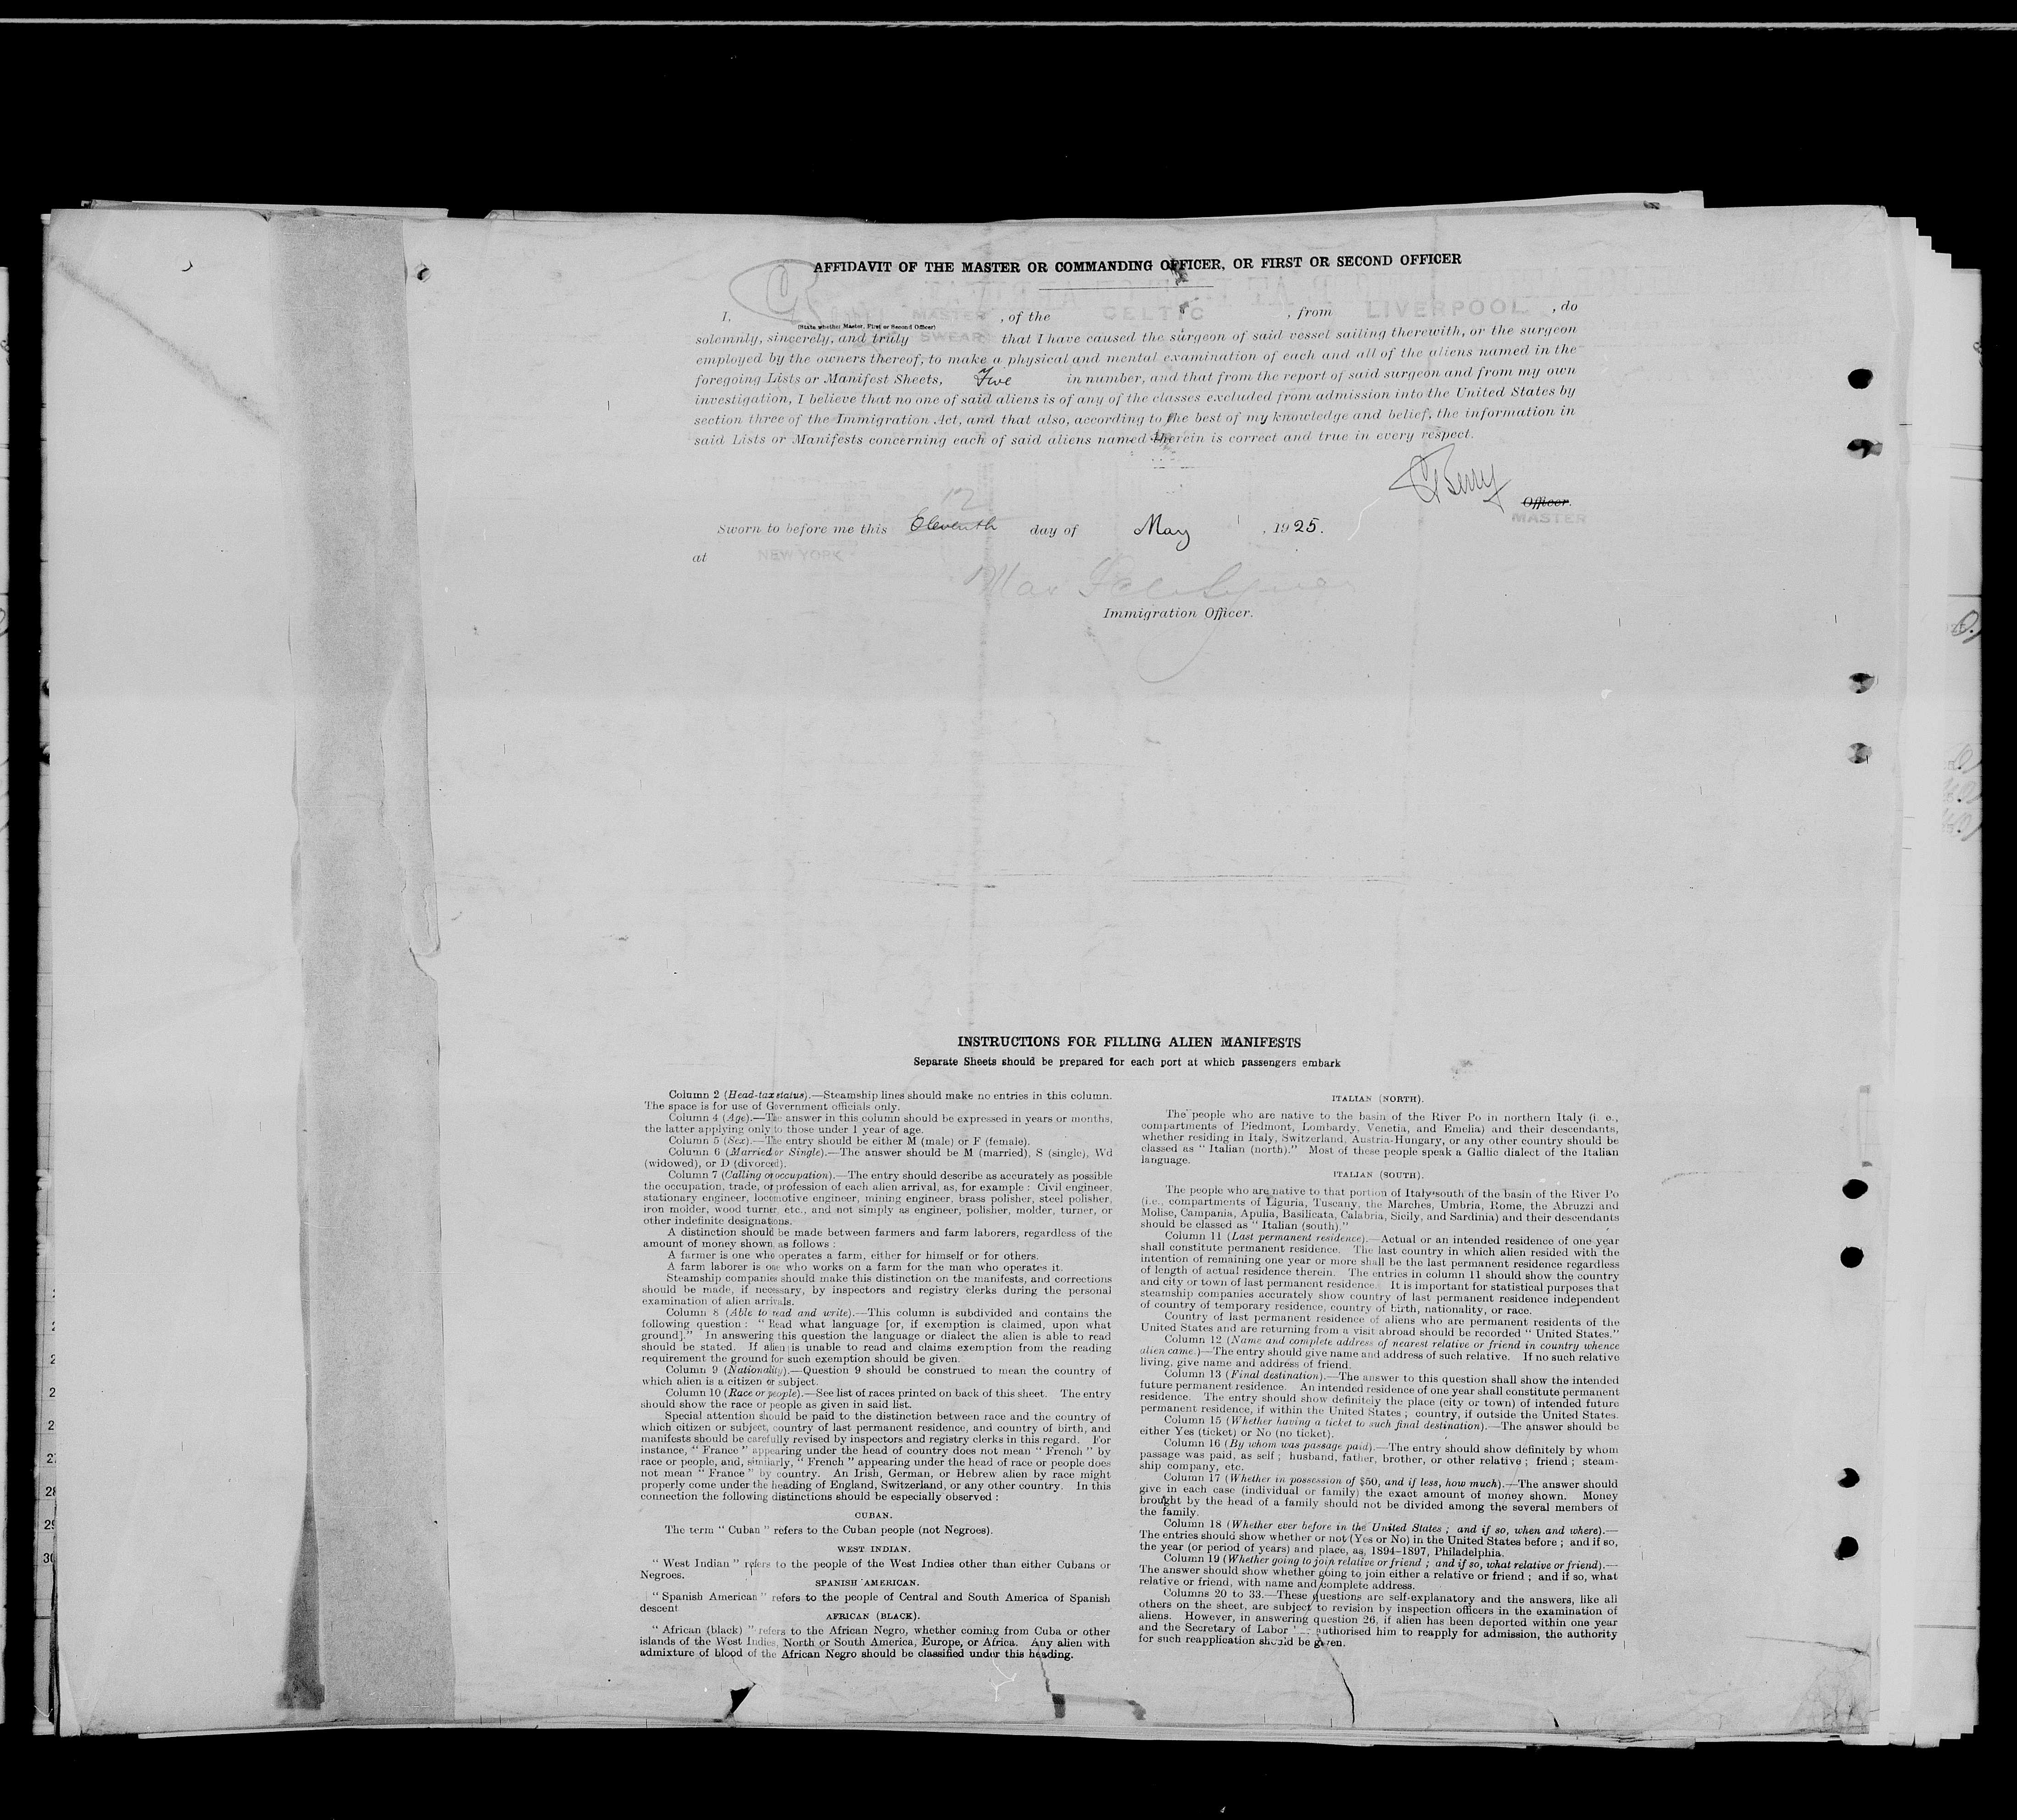 AFFIDAVIT OF THE MASTER OR COMMANDING OFFICER, OR FIRST OR SECOND OFFICER
I, MASTER, of the CELTIC, from LIVERPOOL, do
(State whether Master, First or Second Officer)
solemnly, sincerely, and truly SWEAR that I have caused the surgeon of said vessel sailing therewith, or the surgeon
employed by the owners thereof, to make a physical and mental examination of each and all of the aliens named in the
foregoing Lists or Manifest Sheets, Five in number, and that from the report of said surgeon and from my own
investigation, I believe that no one of said aliens is of any of the classes excluded from admission into the United States by
section three of the Immigration Act, and that also, according to the best of my knowledge and belief, the information in
said Lists or Manifests concerning each of said aliens named therein is correct and true in every respect.
Berry
Officer.
MASTER
12
Sworn to before me this Eleventh day of May, 1925.
at NEW YORK
Immigration Officer.
INSTRUCTIONS FOR FILLING ALIEN MANIFESTS
Separate Sheets should be prepared for each port at which passengers embark
Column 2 (Head-tax status).—Steamship lines should make no entries in this column.
The space is for use of Government officials only.
Column 4 (Age).—The answer in this column should be expressed in years or months,
the latter applying only to those under 1 year of age.
Column 5 (Sex).—The entry should be either M (male) or F (female).
Column 6 (Married or Single).—The answer should be M (married), S (single), Wd
(widowed), or D (divorced).
Column 7 (Calling or occupation).—The entry should describe as accurately as possible
the occupation, trade, or profession of each alien arrival, as, for example : Civil engineer,
stationary engineer, locomotive engineer, mining engineer, brass polisher, steel polisher,
iron molder, wood turner, etc., and not simply as engineer, polisher, molder, turner, or
other indefinite designations.
A distinction should be made between farmers and farm laborers, regardless of the
amount of money shown, as follows :
A farmer is one who operates a farm, either for himself or for others.
A farm laborer is one who works on a farm for the man who operates it.
Steamship companies should make this distinction on the manifests, and corrections
should be made, if necessary, by inspectors and registry clerks during the personal
examination of alien arrivals.
Column 8 (Able to read and write).—This column is subdivided and contains the
following question : “ Read what language [or, if exemption is claimed, upon what
ground].” In answering this question the language or dialect the alien is able to read
should be stated. If alien is unable to read and claims exemption from the reading
requirement the ground for such exemption should be given.
Column 9 (Nationality).—Question 9 should be construed to mean the country of
which alien is a citizen or subject.
Column 10 (Race or people).—See list of races printed on back of this sheet. The entry
should show the race or people as given in said list.
Special attention should be paid to the distinction between race and the country of
which citizen or subject, country of last permanent residence, and country of birth, and
manifests should be carefully revised by inspectors and registry clerks in this regard. For
instance, “ France ” appearing under the head of country does not mean “ French ” by
race or people, and, similarly, “ French ” appearing under the head of race or people does
not mean “ France ” by country. An Irish, German, or Hebrew alien by race might
properly come under the heading of England, Switzerland, or any other country. In this
connection the following distinctions should be especially observed :
CUBAN.
The term “ Cuban ” refers to the Cuban people (not Negroes).
WEST INDIAN.
“ West Indian ” refers to the people of the West Indies other than either Cubans or
Negroes.
SPANISH AMERICAN.
“ Spanish American ” refers to the people of Central and South America of Spanish
descent
AFRICAN (BLACK).
“ African (black) ” refers to the African Negro, whether coming from Cuba or other
islands of the West Indies, North or South America, Europe, or Africa. Any alien with
admixture of blood of the African Negro should be classified under this heading.
ITALIAN (NORTH).
The people who are native to the basin of the River Po in northern Italy (i. e.,
compartments of Piedmont, Lombardy, Venetia, and Emelia) and their descendants,
whether residing in Italy, Switzerland, Austria-Hungary, or any other country should be
classed as “ Italian (north).” Most of these people speak a Gallic dialect of the Italian
language.
ITALIAN (SOUTH).
The people who are native to that portion of Italy south of the basin of the River Po
(i.e., compartments of Liguria, Tuscany, the Marches, Umbria, Rome, the Abruzzi and
Molise, Campania, Apulia, Basilicata, Calabria, Sicily, and Sardinia) and their descendants
should be classed as “ Italian (south).”
Column 11 (Last permanent residence).—Actual or an intended residence of one year
shall constitute permanent residence. The last country in which alien resided with the
intention of remaining one year or more shall be the last permanent residence regardless
of length of actual residence therein. The entries in column 11 should show the country
and city or town of last permanent residence. It is important for statistical purposes that
steamship companies accurately show country of last permanent residence independent
of country of temporary residence, country of birth, nationality, or race.
Country of last permanent residence of aliens who are permanent residents of the
United States and are returning from a visit abroad should be recorded “ United States.”
Column 12 (Name and complete address of nearest relative or friend in country whence
alien came.)—The entry should give name and address of such relative. If no such relative
living, give name and address of friend.
Column 13 (Final destination).—The answer to this question shall show the intended
future permanent residence. An intended residence of one year shall constitute permanent
residence. The entry should show definitely the place (city or town) of intended future
permanent residence, if within the United States ; country, if outside the United States.
Column 15 (Whether having a ticket to such final destination).—The answer should be
either Yes (ticket) or No (no ticket).
Column 16 (By whom was passage paid).—The entry should show definitely by whom
passage was paid, as self ; husband, father, brother, or other relative ; friend ; steam-
ship company, etc.
Column 17 (Whether in possession of $50, and if less, how much).—The answer should
give in each case (individual or family) the exact amount of money shown. Money
brought by the head of a family should not be divided among the several members of
the family.
Column 18 (Whether ever before in the United States ; and if so, when and where).—
The entries should show whether or not (Yes or No) in the United States before ; and if so,
the year (or period of years) and place, as, 1894-1897, Philadelphia.
Column 19 (Whether going to join relative or friend ; and if so, what relative or friend).—
The answer should show whether going to join either a relative or friend ; and if so, what
relative or friend, with name and complete address.
Columns 20 to 33.—These questions are self-explanatory and the answers, like all
others on the sheet, are subject to revision by inspection officers in the examination of
aliens. However, in answering question 26, if alien has been deported within one year
and the Secretary of Labor authorised him to reapply for admission, the authority
for such reapplication should be given.
28
29
30